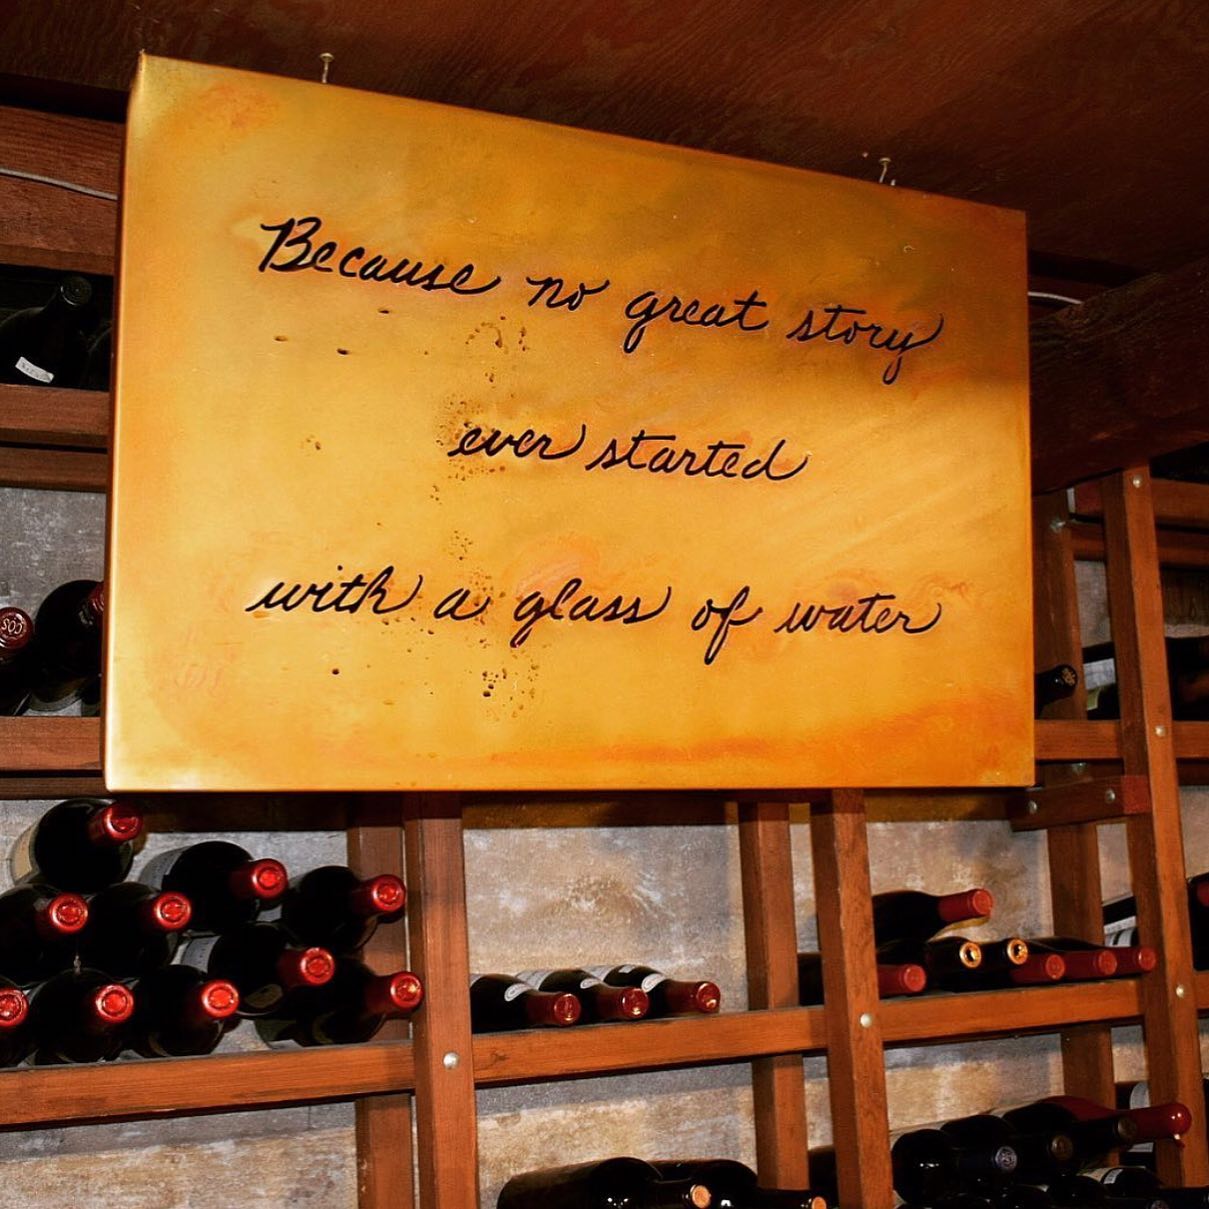 Because no great story
ever started
with a glass of water